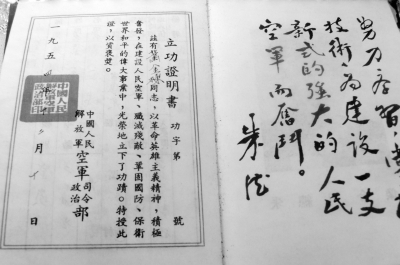 努力学習
技術，为建设一支
新式的强大的人民
空軍而奮鬥。
朱德
立功證明書
功字第 號
茲有 同志，以革命英雄主義精神，積極
奮發，在建設人民空軍、殲滅殘敵、鞏固國防、保衛
世界和平的偉大事業中，光榮地立下了功蹟。特授此
證，以資褒獎。
中國人民
解放軍空軍司令
政治部
一九五 年 月 日